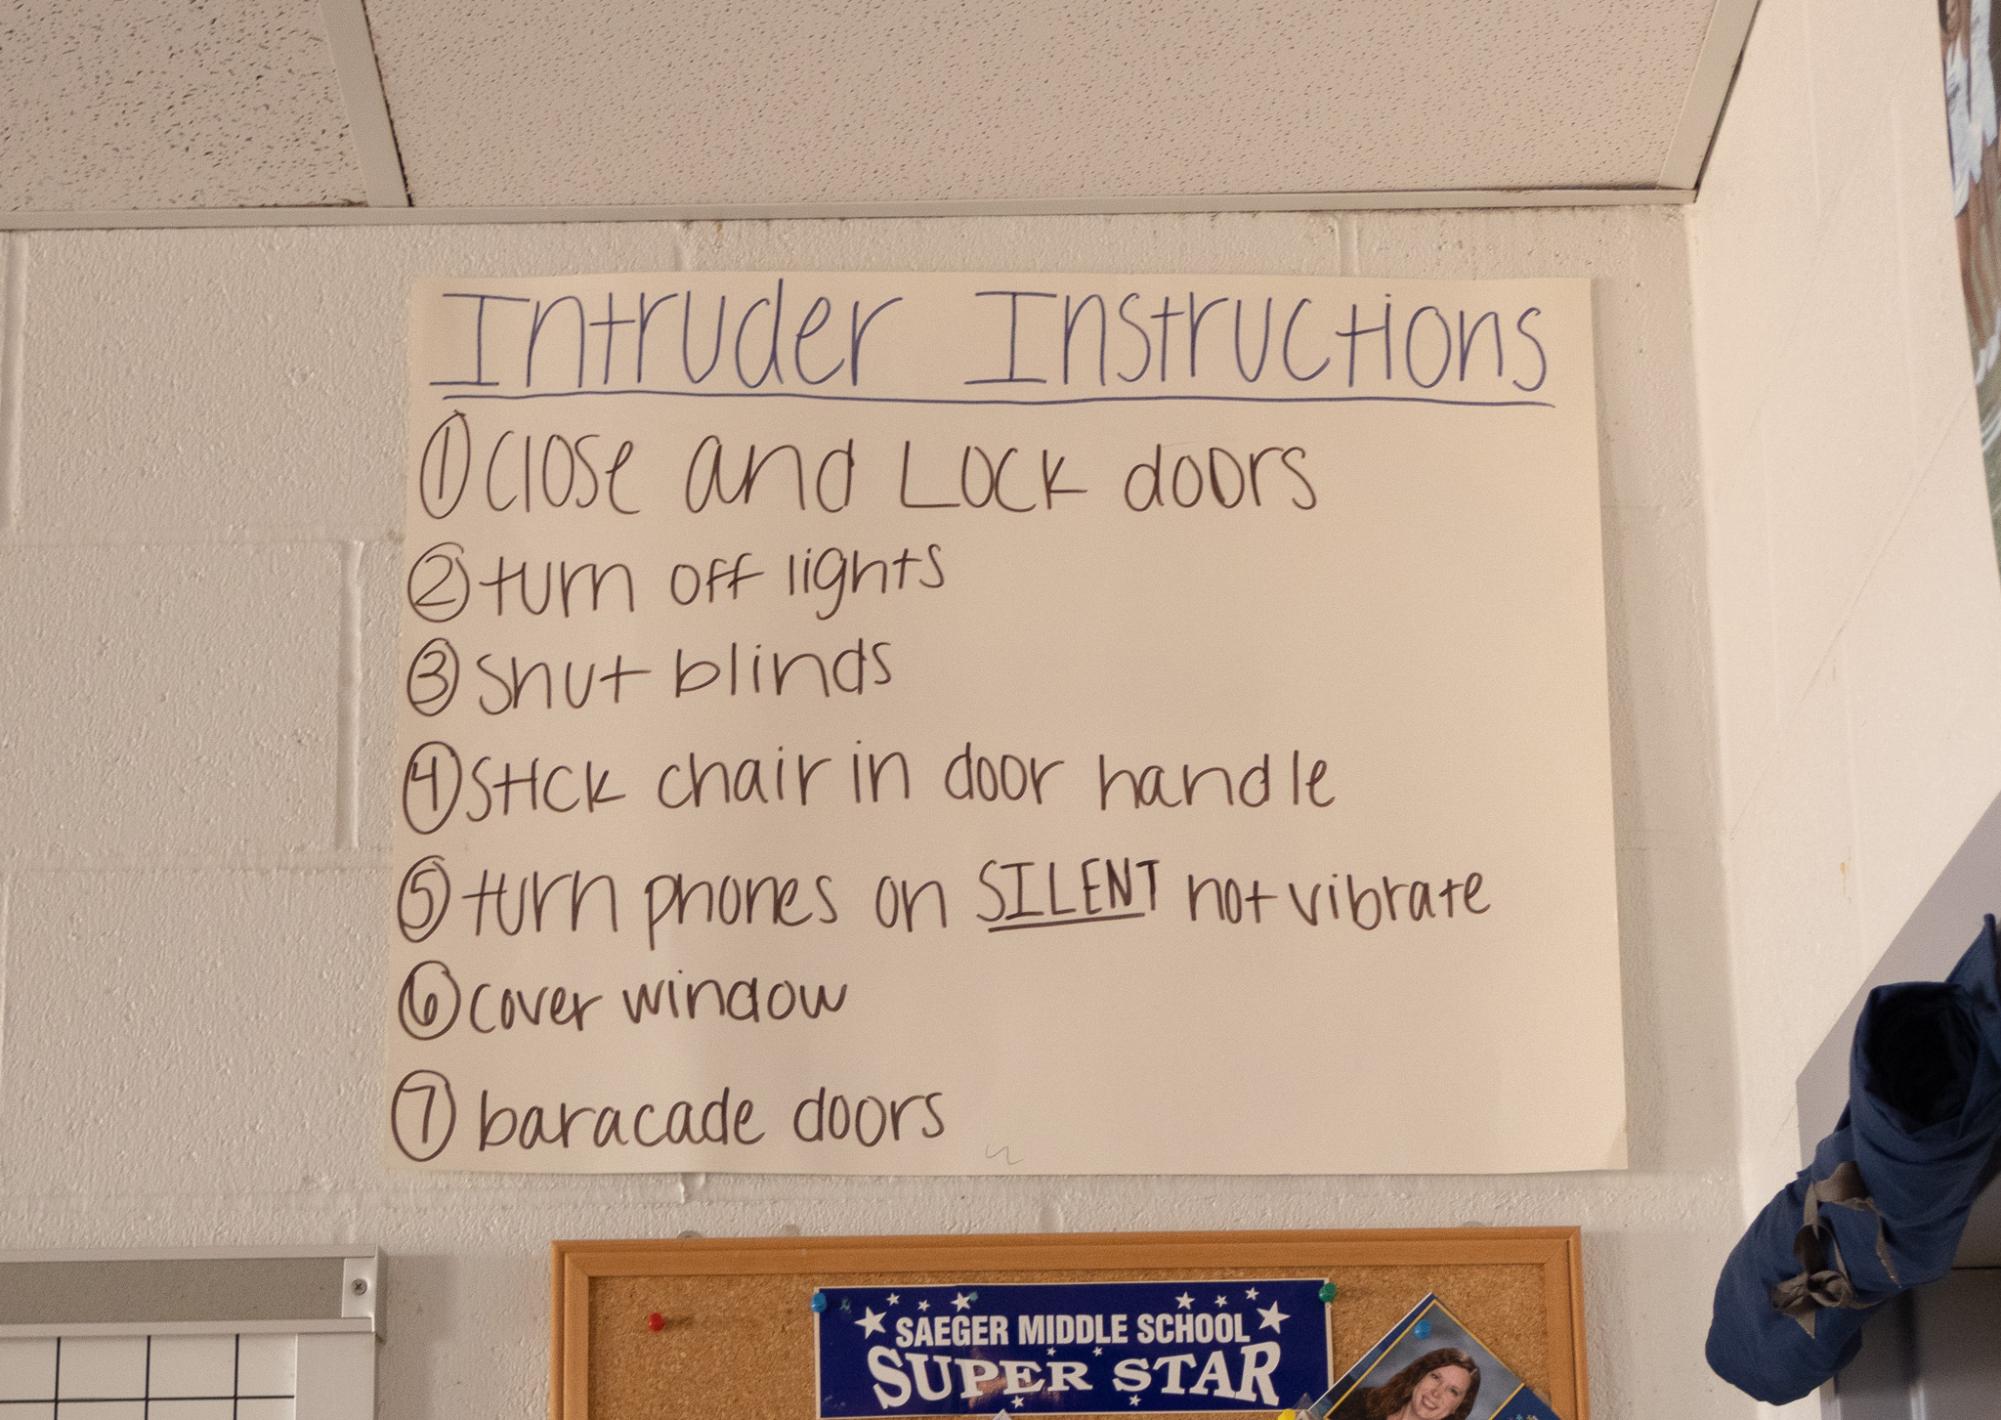 Intruder Instructions
① Close and Lock doors
② turn off lights
③ shut blinds
④ stick chair in door handle
⑤ turn phones on SILENT not vibrate
⑥ cover window
⑦ baracade doors
SAEGER MIDDLE SCHOOL
SUPER STAR